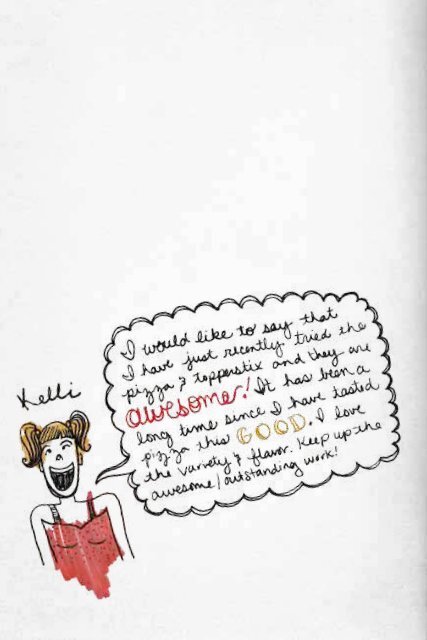 Kelli
I would like to say that
I have just recently tried the
pizza & topperstix and they are
awesome! It has been a
long time since I have tasted
pizza this GOOD. I love
the variety & flavor. Keep up the
awesome/outstanding work!